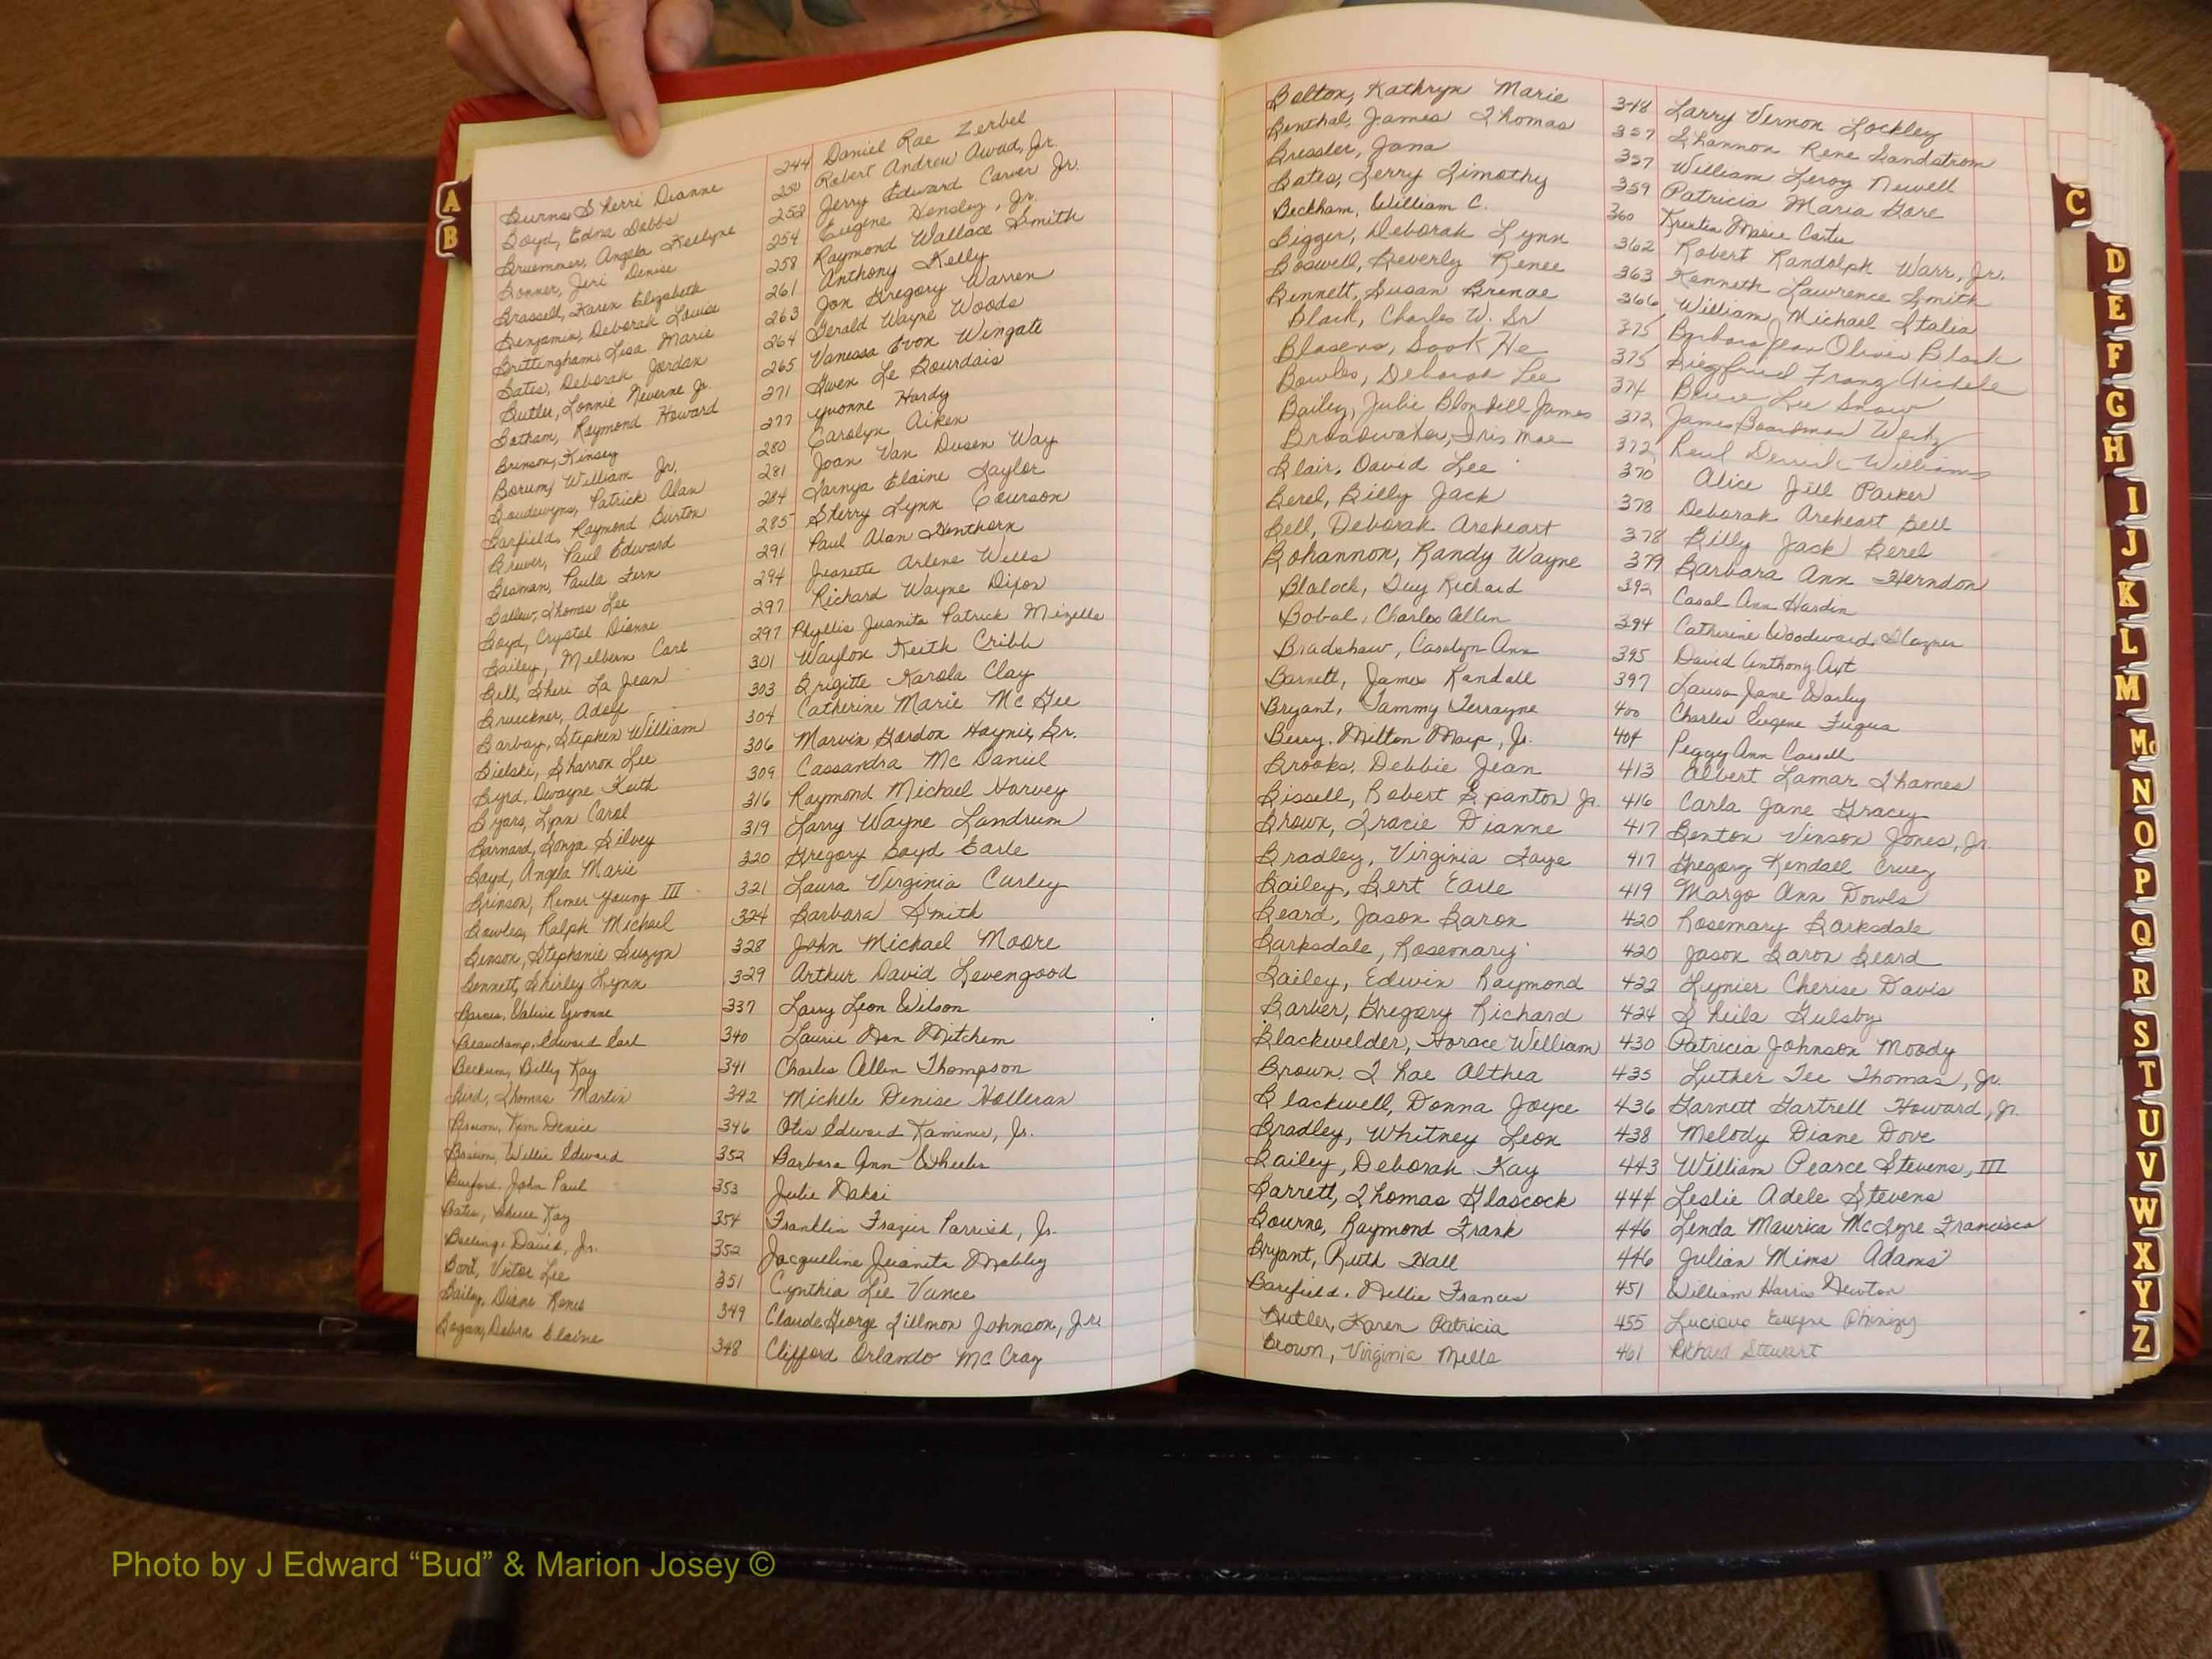 Burns, Sherri Dianne 244 Daniel Rae Zerbel
Boyd, Edna Dobbs 250 Robert Andrew Awad, Jr.
Bruemmer, Angela Kellyne 252 Jerry Edward Carver Jr.
Bonner, Jeri Denise 254 Eugene Hensley, Jr.
Brassell, Karen Elizabeth 258 Raymond Wallace Smith
Benjamin, Deborah Louise 261 Anthony Kelly
Brittingham, Lisa Marie 263 Jon Gregory Warren
Bates, Deborah Jordan 264 Gerald Wayne Woods
Butler, Lonnie Neverne Jr 265 Vanessa Evon Wingate
Botham, Raymond Howard 271 Gwen Le Bourdais
Brinson, Kinsey 277 Yvonne Hardy
Borum, William Jr. 280 Carolyn Aiken
Boudewyns, Patrick Alan 281 Joan Van Dusen Way
Barfield, Raymond Burton 284 Tarnya Elaine Taylor
Brewer, Paul Edward 285 Sherry Lynn Courson
Beaman, Paula Fern 291 Paul Alan Henthorn
Ballew, Thomas Lee 294 Jeanette Arlene Wells
Boyd, Crystal Dianne 297 Richard Wayne Dixon
Bailey, Melbern Carl 297 Phyllis Juanita Patrick Mizelle
Bell, Sheri La Jean 301 Waylon Keith Cribb
Brueckner, Adolf 303 Brigitte Karola Clay
Barbay, Stephen William 304 Catherine Marie McGee
Bielski, Sharron Lee 306 Marvin Gordon Haynie, Sr.
Byrd, Dwayne Keith 309 Cassandra McDaniel
Byars, Lynn Carol 316 Raymond Michael Harvey
Barnard, Sonja Silvey 319 Larry Wayne Landrum
Boyd, Angela Marie 320 Gregory Boyd Earle
Brinson, Remer Young III 321 Laura Virginia Curley
Bowles, Ralph Michael 324 Barbara Smith
Benson, Stephanie Suzyn 328 John Michael Moore
Bennett, Shirley Lynn 329 Arthur David Levengood
Barnes, Valerie Yvonne 337 Larry Leon Wilson
Beauchamp, Edward Earl 340 Laurie Dan Mitchem
Beckum, Billy Kay 341 Charles Allen Thompson
Bird, Thomas Martin 342 Michele Denise Holleran
Brown, Kim Denise 346 Otis Edward Kaminer, Jr.
Brown, Willie Edward 352 Barbara Ann Wheeler
Burford, John Paul 353 Julie Daksi
Bates, Kay 354 Franklin Frazier Parrish, Jr.
David, Jr. 352 Jacqueline Juanita Mobley
Bort, Victor Lee 351 Cynthia Lee Vance
Bailey, Diane Renee 349 Claude George Tillmon Johnson, Jr.
Bogan, Debra Elaine 348 Clifford Orlando McCray
Bolton, Kathryn Marie 348 Larry Vernon Lockley
Benthal, James Thomas 357 Shannon Rene Sandstrom
Bressler, Jana 357 William Leroy Newell
Bates, Terry Timothy 359 Patricia Maria Gore
Beckham, William C. 360 Marie Carter
Bigger, Deborah Lynn 362 Robert Randolph Warr, Jr.
Boswell, Beverly Renee 363 Kenneth Lawrence Smith
Bennett, Susan Brenae 366 William Michael Stalia
Black, Charles W. Sr 375 Barbara Jean Oliver Black
Blasens, Sook He 375 Siegfried Franz
Bowles, Deborah Lee 374 Bruce Lee Snow
Bailey, Julie Blondell James 372 James Boardman Wertz
Broadwater, Iris Mae 372 Derrick Williams
Blair, David Lee 370 Alice Jill Parker
Berel, Billy Jack 378 Deborah Areheart Bell
Bell, Deborah Areheart 378 Billy Jack Berel
Bohannon, Randy Wayne 379 Barbara Ann Herndon
Blalock, Guy Richard 392 Carol Ann Hardin
Bobal, Charles Allen 394 Catherine Woodward
Bradshaw, Carolyn Ann 395 David Anthony Axt
Barnett, James Randall 397 Laura Jane Warley
Bryant, Tammy Terrayne 400 Charles Eugene Fuqua
Berry, Milton , Jr. 404 Peggy Ann
Brooks, Debbie Jean 413 Albert Lamar Thames
Bissell, Robert Spanton Jr. 416 Carla Jane Gracey
Brown, Tracie Dianne 417 Benton Vinson Jones, Jr.
Bradley, Virginia Faye 417 Gregory Kendall Cruey
Bailey, Bert Earle 419 Margo Ann Dowls
Beard, Jason Baron 420 Rosemary Barksdale
Barksdale, Rosemary 420 Jason Baron Beard
Bailey, Edwin Raymond 422 Lynier Cherise Davis
Barber, Gregory Richard 424 Sheila Gulsby
Blackwelder, Horace William 430 Patricia Johnson Moody
Brown, Thae Althea 435 Luther Tee Thomas, Jr.
Blackwell, Donna Joyce 436 Garnett Gartrell Howard, Jr.
Bradley, Whitney Leon 438 Melody Diane Dove
Bailey, Deborah Kay 443 William Pearce Stevens, III
Barrett, Thomas Glascock 444 Leslie Adele Stevens
Bourne, Raymond Frank 446 Linda Maurica McIntyre Francisco
Bryant, Ruth Hall 446 Julian Mims Adams
Barefield, Nellie Frances 451 William Harris Newton
Butler, Karen Patricia 455 Lucious Eugene Phinizy
Brown, Virginia Mells 461 Richard Stewart
A
B
C
D
E
F
G
H
I
J
K
L
M
Mc
N
O
P
Q
R
S
T
U
V
W
X
Y
Z
Photo by J Edward “Bud” & Marion Josey ©